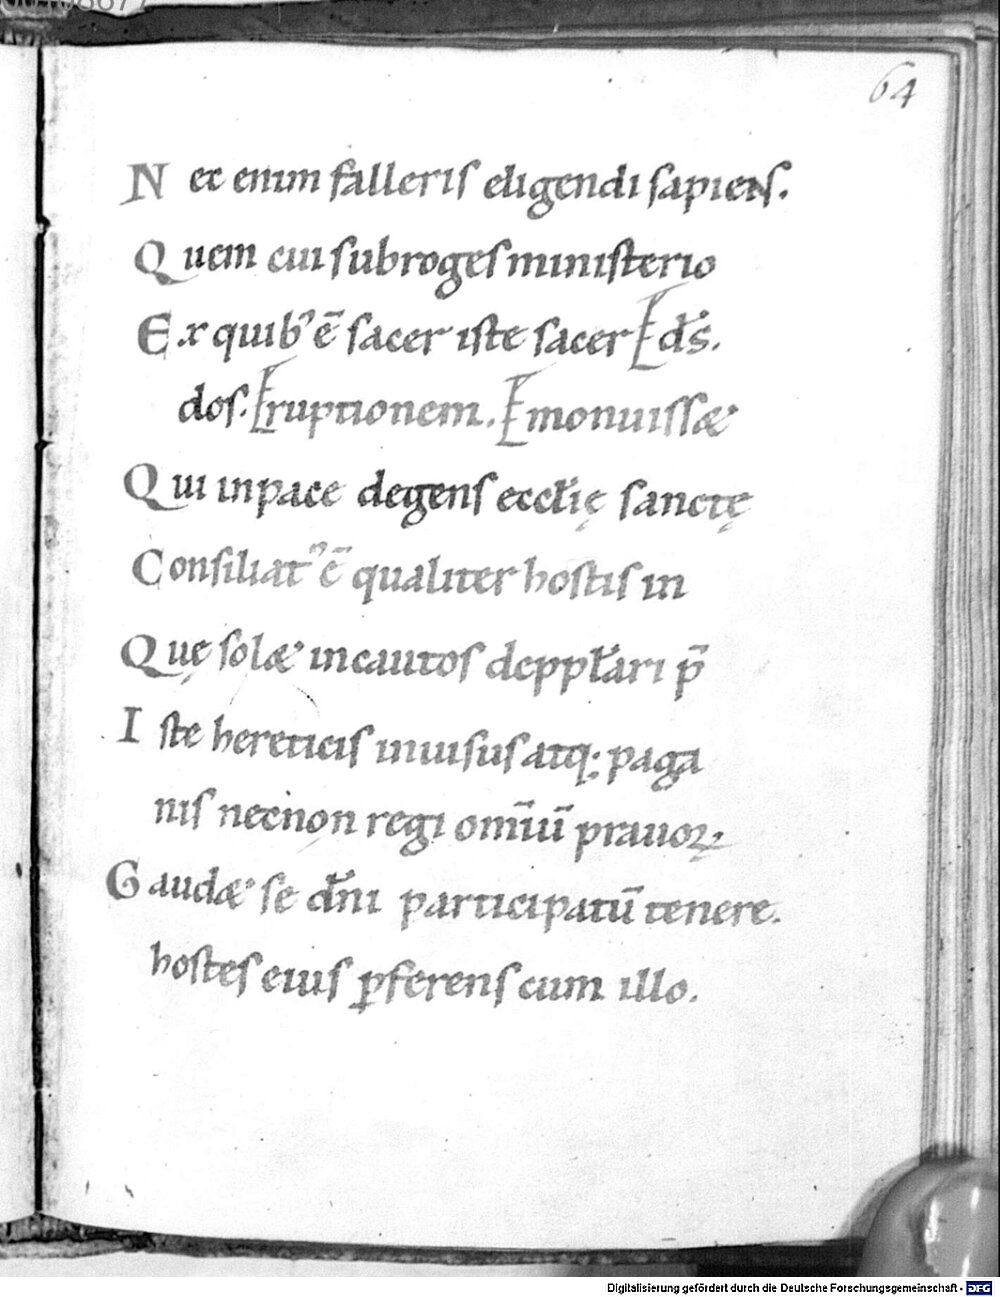 64
Nec enim falleris eligendi sapiens.
Quem cui subroges ministerio
Ex quib' ē sacer iste sacerEds.
dos. Eruptionem. Emonuissæ
Qui inpace degens ecclię sanctę
Consiliat' ē qualiter hostis in
Quę solæ incautos deppłari p̄
Iste hereticis inuisus atq; paga
nis necnon regi omīuū prauoꝝ
Gaudæ se dn̄i participatū tenere.
hostes eius ꝑferens cum illo.
Digitalisierung gefördert durch die Deutsche Forschungsgemeinschaft - DFG